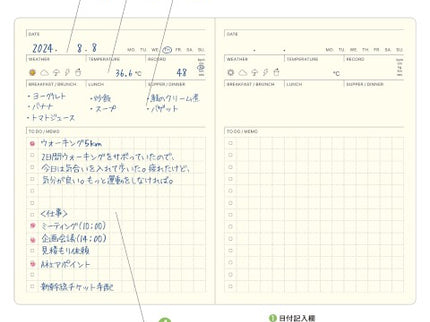 DATE
2024. 8. 8
MO. TU. WE. TH. FR. SA. SU
WEATHER TEMPERATURE RECORD
36.6 ℃ 48
BREAKFAST / BRUNCH LUNCH SUPPER / DINNER
・ヨーグルト ・炒飯 ・鮭のクリーム煮
・バナナ ・スープ ・バゲット
・トマトジュース
TO DO / MEMO
ウォーキング5km
2日間ウォーキングをサボっていたので、
今日は気合いを入れて歩いた。疲れたけど、
気分が良い。もっと運動をしなければ。
<仕事>
ミーティング(10:00)
企画会議(14:00)
見積もり依頼
A社アポイント
新幹線チケット手配
DATE
MO. TU. WE. TH. FR. SA. SU
WEATHER TEMPERATURE RECORD
℃
BREAKFAST / BRUNCH LUNCH SUPPER / DINNER
TO DO / MEMO
1 日付記入欄